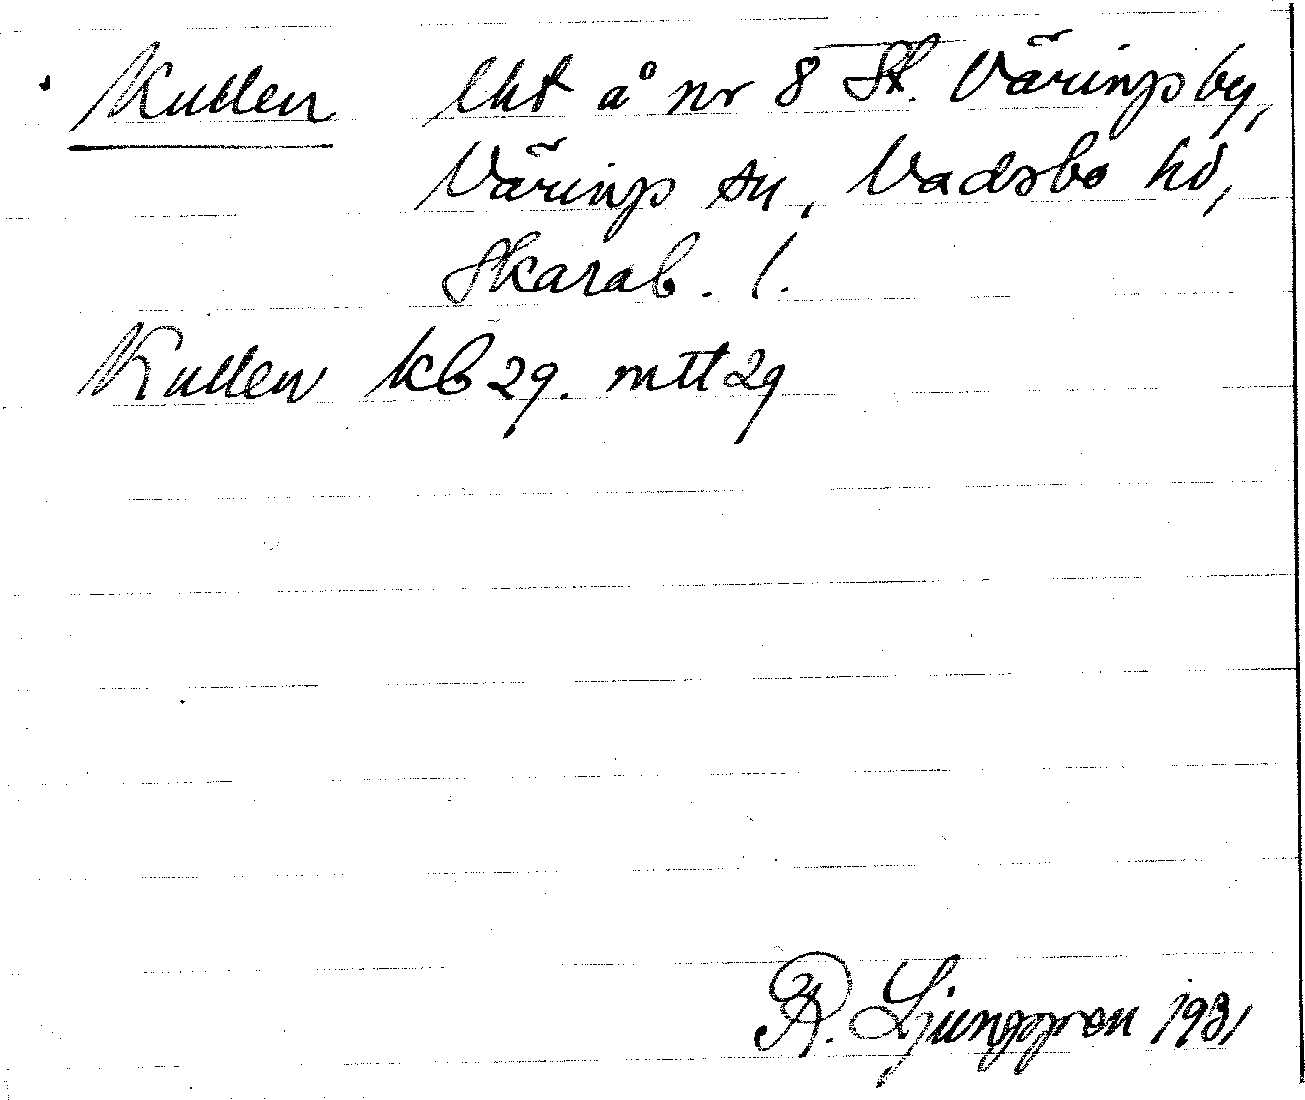 Kullen lht å nr 8 St. Värings by,
Värings sn, Vadsbo hd,
Skarab. l.
Kullen kb 29. mtt 29
R. Ljunggren 1931